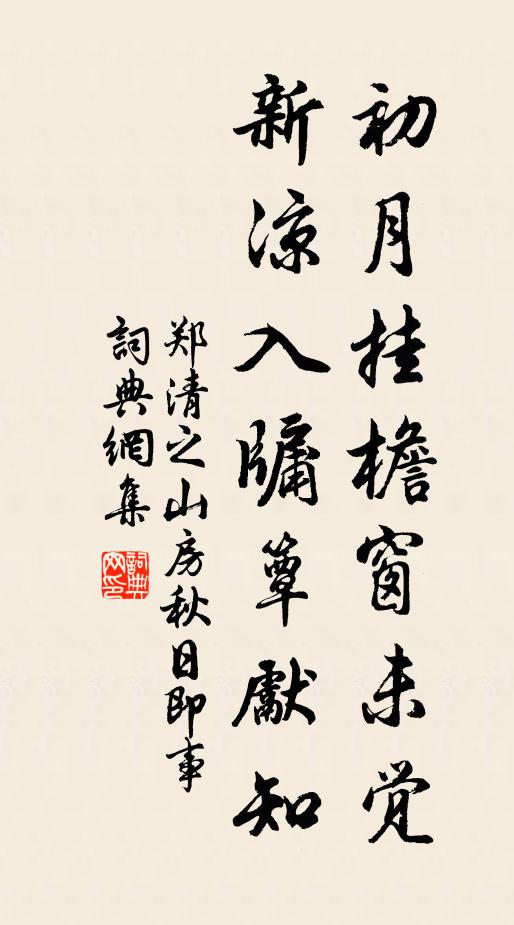 初月挂檐窗未觉
新凉入牖簟獻知
郑清之山房秋日即事
詞典網集
詞典网印